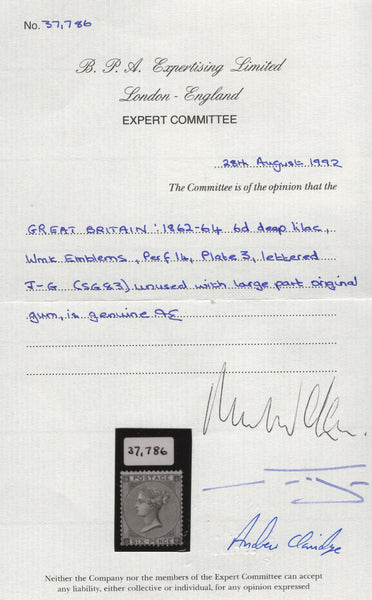 No. 37,786
B. P. A. Expertising Limited
London - England
EXPERT COMMITTEE
28th August 1992
The Committee is of the opinion that the
GREAT BRITAIN: 1862-64 6d deep lilac,
Wmk Emblems, Perf 14, Plate 3, lettered
J-G (SG83) unused with large part original
gum, is genuine
37,786
POSTAGE
SIX PENCE
Andrew Claridge
Neither the Company nor the members of the Expert Committee can accept
any liability, either collective or individual, for any opinion expressed